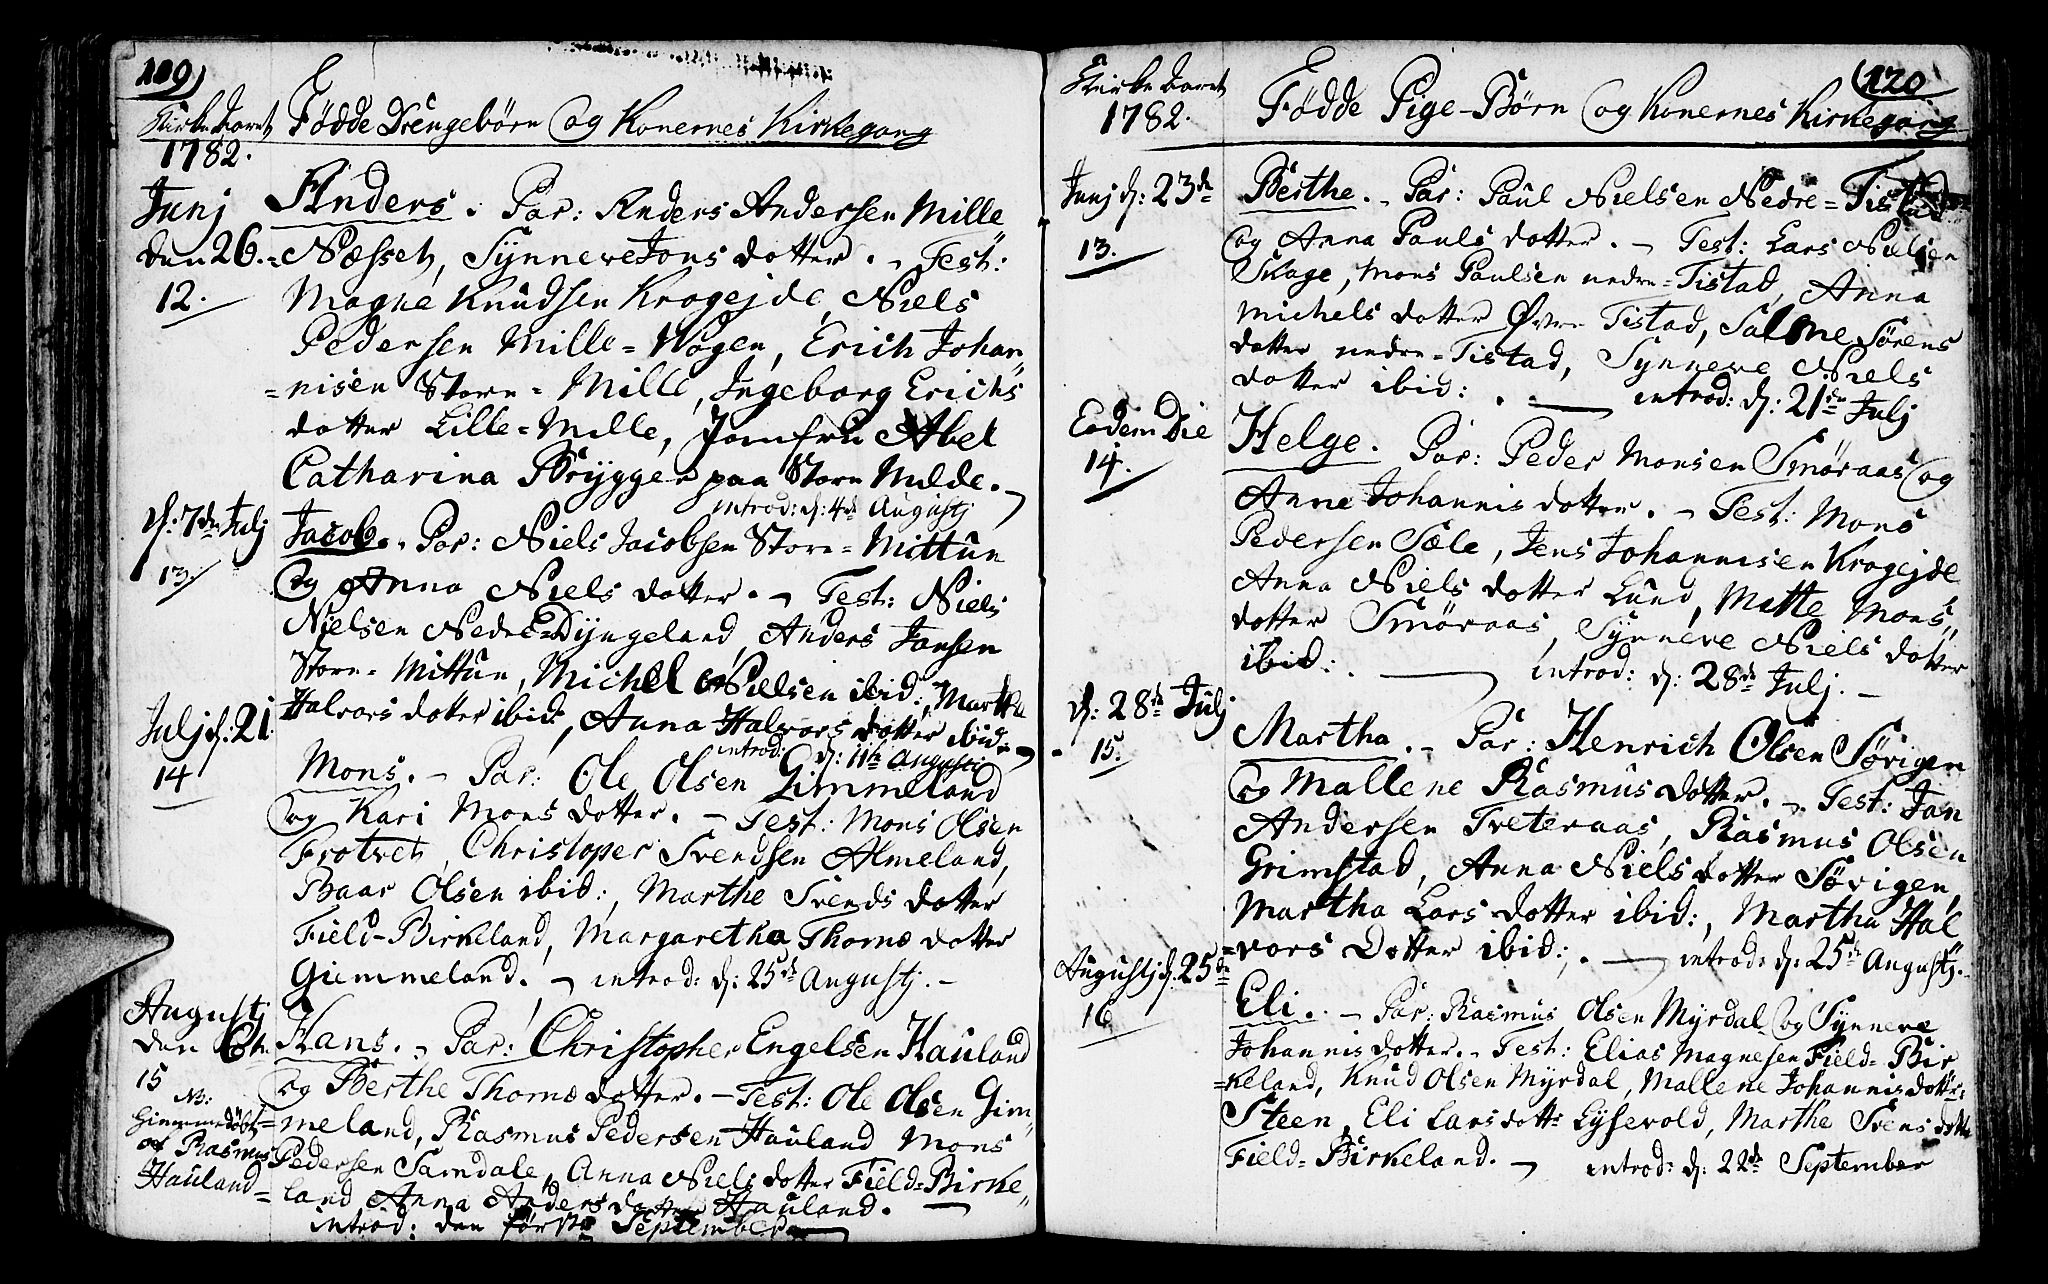 119)
Kirke Aaret
1782.
Fødde Drengebörn og Konernes Kirkegang
Junj
den 26.
12.
Anders. Par: Anders Andersen Mille
=Næsset, Synneve Jons dotter. - Test:
Magne Knudsen Kragejde, Niels
Pedersen Mille=Wogen, Erich Johan
=nisen Store=Mille, Ingeborg Erichs
dotter Lille=Mille, Jomfru Abel
Catharina Brygger paa Store Milde.
introd: d: 4de Augustj
d: 7de Julj
13.
Jacob. Par: Niels Jacobsen Store=Mittun
og Anna Niels dotter. - Test: Niels
Nielsen Nedre=Dyngeland, Anders Jansen
Store=Mittun, Michel Nielsen ibid:, Martha
Halvors dotter ibid:, Anna Halvors dotter ibid:
introd: d: 11te Augustj
Julj d: 21
14
Mons. - Par: Ole Olsen Gimmeland
og Kari Mons dotter. - Test: Mons Olsen
Frotvet, Christoper Svendsen Almeland,
Baar Olsen ibid:, Marthe Svends dotter
Field-Birkeland, Margaretha Thomæ dotter
Giemmeland. - introd: d: 25de Augustj. -
Augustj
den 6te
15
NB:
Hiemmedöbt
af Rasmus
Hauland
Hans. - Par: Christopher Engelsen Hauland
og Berthe Thomæ dotter. - Test: Ole Olsen Gim
=meland, Rasmus Pedersen Hauland Mons
Pedersen Samdale, Anna Niels dotter Field=Birke
=land Anna Anders dotter Hauland.
introd: den første September
(120
Kirke Aaret
1782.
Födde Pige-Börn og Konernes Kirkegang
Junj d: 23de
13.
Berthe. - Par: Paul Nielsen Nedre=Tistad
og Anna Pauls dotter. - Test: Lars Nielsen
Skage, Mons Paulsen nedre=Tistad, Anna
Michels dotter Øvre Tistad, Salome Sörens
dotter nedre=Tistad, Synneve Niels
dotter ibid: . introd: d: 21de Julj
Eodem Die
14.
Helge. Par: Peder Monsen Smøraas og
Anne Johannis dotter. - Test: Mons
Pedersen Sæle, Jens Johannisen Kragejde
Anna Niels dotter Lund, Mette Mons
dotter Smøraas, Synneve Niels dotter
ibid: . introd: d: 28de Julj. -
d: 28de Julj
15.
Martha. - Par: Henrich Olsen Sørigen
og Mallene Rasmus dotter. - Test: Jan
Andersen Treteraas, Rasmus Olsen
Grimstad, Anna Niels dotter Sövigen,
Martha Lars dotter ibid:, Martha Hal
=vors Dotter ibid:. introd: d: 25de Augustj.
Augustj d: 25de
16
Eli. - Par: Rasmus Olsen Myrdal og Synneve
Johannis dotter. - Test: Elias Magnesen Field=Bir
=keland, Knud Olsen Myrdal, Mallene Johannis dotter
Steen, Eli Lars dott: Lysevold, Marthe Svens dotter
Field=Birkeland. - introd: d: 22de September